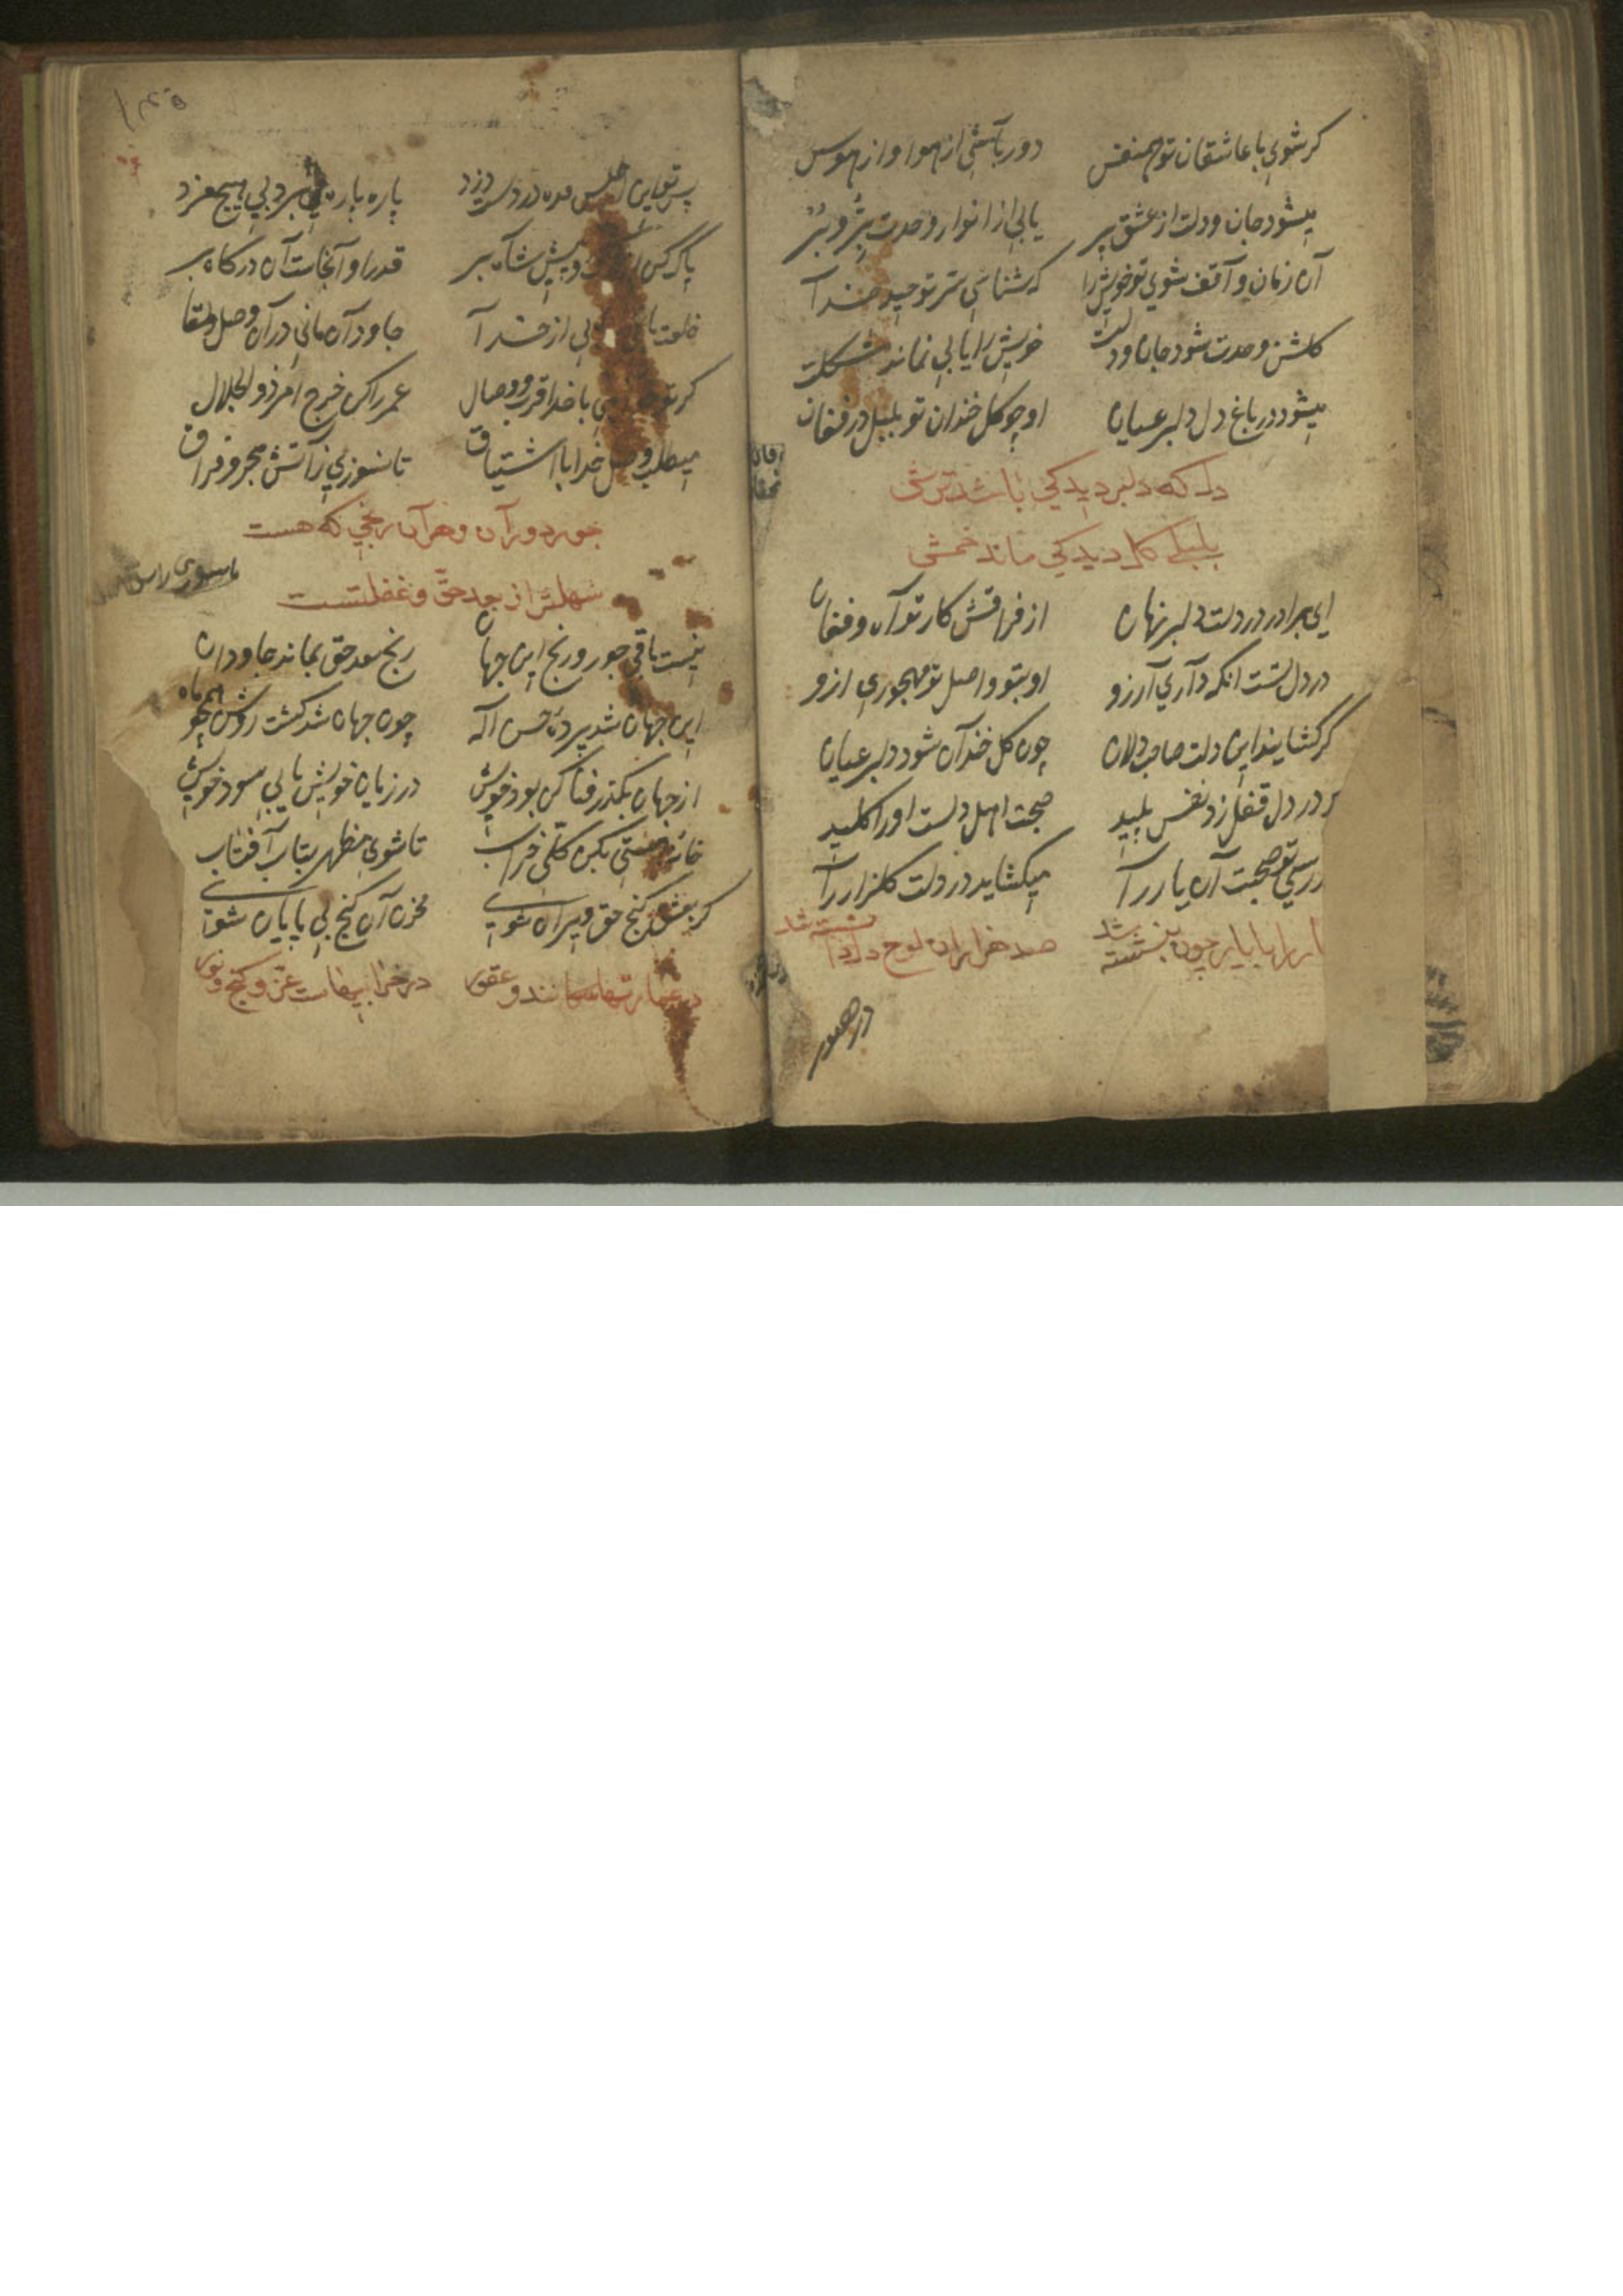 کر شوی با عاشقان تو همنفس دور باشی از هوا و از هوس
میشود جان و دلت از عشق پر یابی از انوار وحدت پر و بر
آن زمان واقف شوی تو خویش را که شناسی سر توحید خدا
کلشن وحدت شود جان و دلت خویش را یابی نماند مشکلت
میشود در باغ دل دلبر عیان او چو کل خندان تو بلبل در فغان
دل که دلبر دید کی باشد ترش
بلبلی کل دید کی ماند خمش
ای برادر در دلت دلبر نهان از فراقش کار تو آه و فغان
در دل تست انکه داری آرزو او بتو واصل تو مهجوری ازو
کر کشایند این دلت صاحب دلان چون کل خندان شود دلبر عیان
بر در دل قفل زد نفس پلید صحبت اهل دلست او را کلید
رسی تو صحبت آن یار را میکشاید در دلت کلزار را
یار را با یار چون بنشسته شد صد هزاران لوح دل دانسته شد
در حضور
۱۴۵
پاره پاره میبرد بی هیچ مزد
پاک کن و پیش شاه بر قدر او آنجاست آن درکاه بر
خلعت یابی از خدا جاودان مانی در آن وصل و لقا
کر تو میخواهی با خدا قرب و وصال عمر را کن خرج امر ذو الجلال
میطلب وصل خدا با اشتیاق تا نسوزی ز آتش هجر و فراق
جور دوران و هر آن رنجی که هست
سهلتر از بعد حق و غفلتست
نیست باقی جور و رنج این جهان رنج بعد حق بماند جاودان
این جهان شد پرده حسن اله چون جهان شد کشت روشن همچو ماه
از جهان بکذر فنا کن بود خویش در زیان خویش یابی سود خویش
خانه هستی بکن کلی خراب تا شوی مظهر بتاب آفتاب
کر بعشق کنج حق ویران شوی مخزن آن کنج بی پایان شوی
در عمارتها سکانند و عقور در خرابیهاست عز و کنج و نور